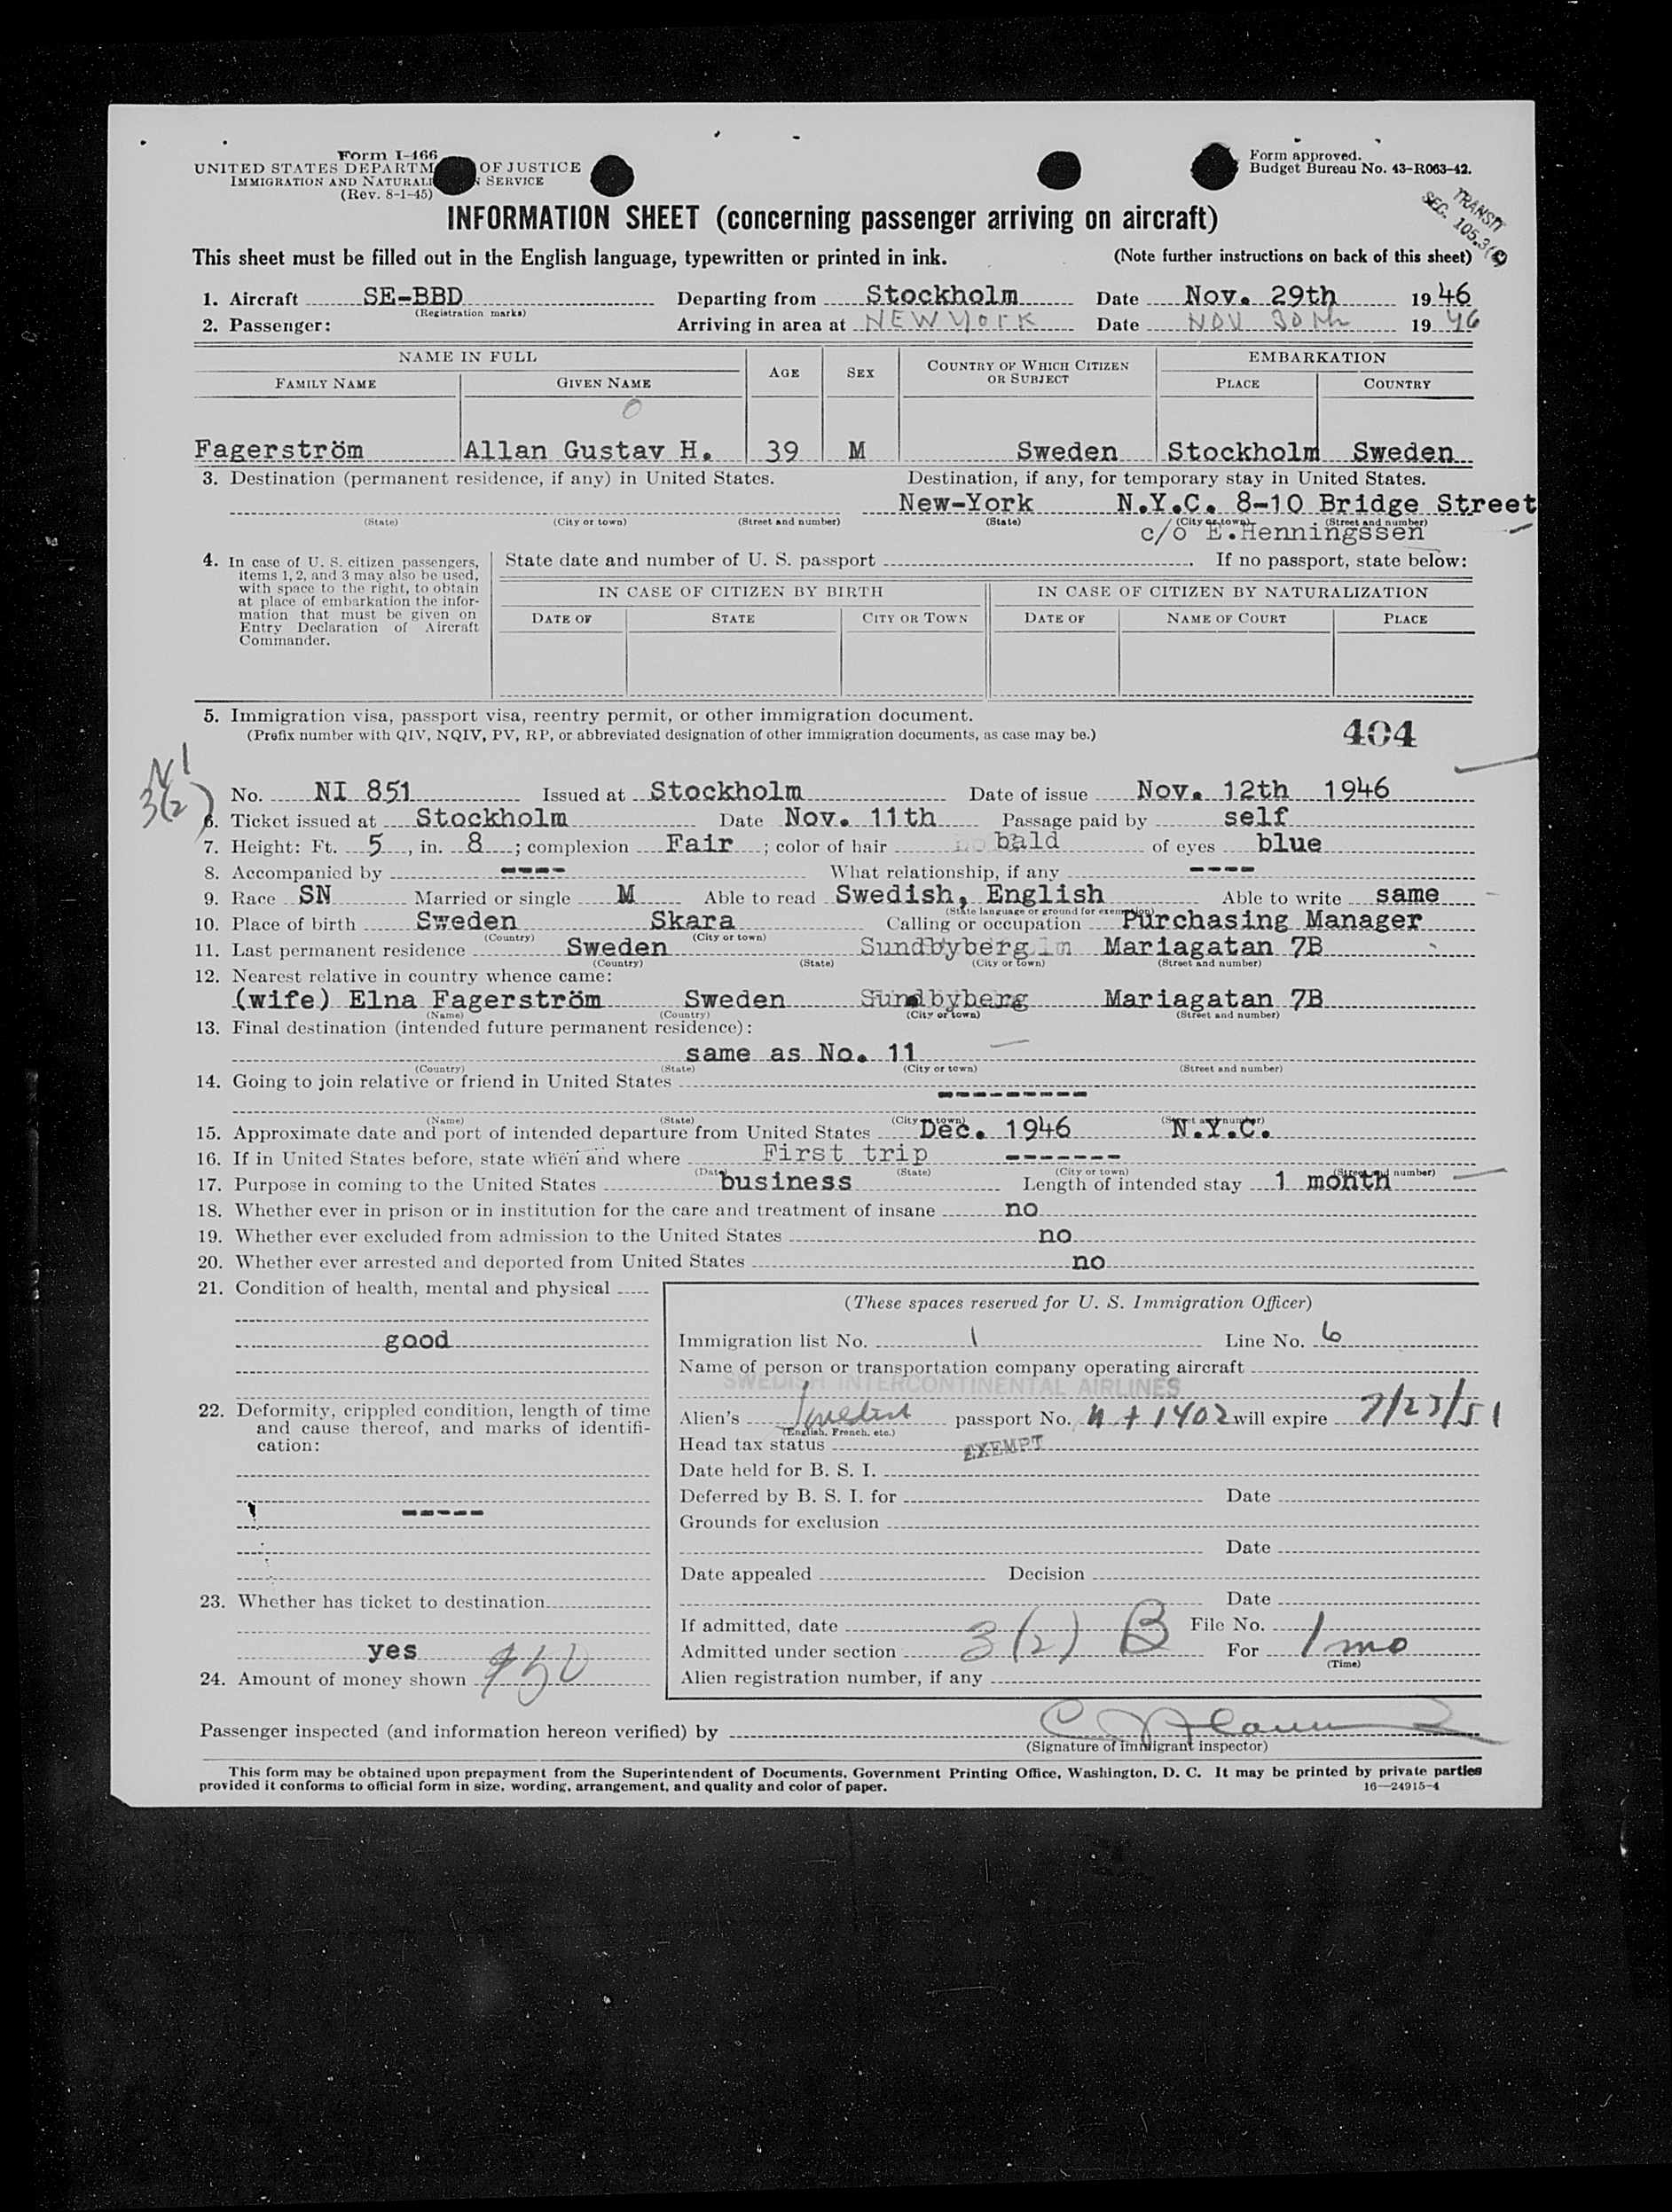 Form I-466
UNITED STATES DEPARTM OF JUSTICE
IMMIGRATION AND NATURALI N SERVICE
(Rev. 8-1-45)
Form approved.
Budget Bureau No. 43-R063-42.
TRANSIT
SEC. 105.3
INFORMATION SHEET (concerning passenger arriving on aircraft)
This sheet must be filled out in the English language, typewritten or printed in ink. (Note further instructions on back of this sheet)
1. Aircraft SE-BBD Departing from Stockholm Date Nov. 29th 1946
(Registration marks)
2. Passenger: Arriving in area at NEW YORK Date NOV 30th 1946
NAME IN FULL AGE SEX COUNTRY OF WHICH CITIZEN OR SUBJECT EMBARKATION
FAMILY NAME GIVEN NAME PLACE COUNTRY
Fagerström Allan Gustav H. 39 M Sweden Stockholm Sweden
3. Destination (permanent residence, if any) in United States. Destination, if any, for temporary stay in United States.
New-York N.Y.C. 8-10 Bridge Street
(State) (City or town) (Street and number) (State) (City or town) (Street and number)
c/o E.Henningssen
4. In case of U. S. citizen passengers, items 1, 2, and 3 may also be used, with space to the right, to obtain at place of embarkation the information that must be given on Entry Declaration of Aircraft Commander.
State date and number of U. S. passport . If no passport, state below:
IN CASE OF CITIZEN BY BIRTH IN CASE OF CITIZEN BY NATURALIZATION
DATE OF STATE CITY OR TOWN DATE OF NAME OF COURT PLACE
5. Immigration visa, passport visa, reentry permit, or other immigration document.
(Prefix number with QIV, NQIV, PV, RP, or abbreviated designation of other immigration documents, as case may be.)
404
N1
3(2)
No. NI 851 Issued at Stockholm Date of issue Nov. 12th 1946
6. Ticket issued at Stockholm Date Nov. 11th Passage paid by self
7. Height: Ft. 5, in. 8; complexion Fair; color of hair bald of eyes blue
8. Accompanied by ---- What relationship, if any ----
9. Race SN Married or single M Able to read Swedish, English Able to write same
(State language or ground for exemption)
10. Place of birth Sweden Skara Calling or occupation Purchasing Manager
(Country) (City or town)
11. Last permanent residence Sweden Sundbyberg Mariagatan 7B
(Country) (State) (City or town) (Street and number)
12. Nearest relative in country whence came:
(wife) Elna Fagerström Sweden Sundbyberg Mariagatan 7B
(Name) (Country) (City or town) (Street and number)
13. Final destination (intended future permanent residence):
same as No. 11
(Country) (State) (City or town) (Street and number)
14. Going to join relative or friend in United States
---------
(Name) (State) (City or town) (Street and number)
15. Approximate date and port of intended departure from United States Dec. 1946 N.Y.C.
16. If in United States before, state when and where First trip -------
(Date) (State) (City or town) (Street and number)
17. Purpose in coming to the United States business Length of intended stay 1 month
18. Whether ever in prison or in institution for the care and treatment of insane no
19. Whether ever excluded from admission to the United States no
20. Whether ever arrested and deported from United States no
21. Condition of health, mental and physical
good
22. Deformity, crippled condition, length of time and cause thereof, and marks of identification:
-----
23. Whether has ticket to destination
yes
24. Amount of money shown 950
(These spaces reserved for U. S. Immigration Officer)
Immigration list No. 1 Line No. 6
Name of person or transportation company operating aircraft
SWEDISH INTERCONTINENTAL AIRLINES
Alien's Swedish passport No. 1402 will expire 7/23/51
(English, French, etc.)
Head tax status EXEMPT
Date held for B. S. I.
Deferred by B. S. I. for Date
Grounds for exclusion
Date
Date appealed Decision
Date
If admitted, date File No.
Admitted under section 3(2) B For 1 mo
(Time)
Alien registration number, if any
Passenger inspected (and information hereon verified) by
(Signature of immigrant inspector)
This form may be obtained upon prepayment from the Superintendent of Documents, Government Printing Office, Washington, D. C. It may be printed by private parties
provided it conforms to official form in size, wording, arrangement, and quality and color of paper. 16—24915-4